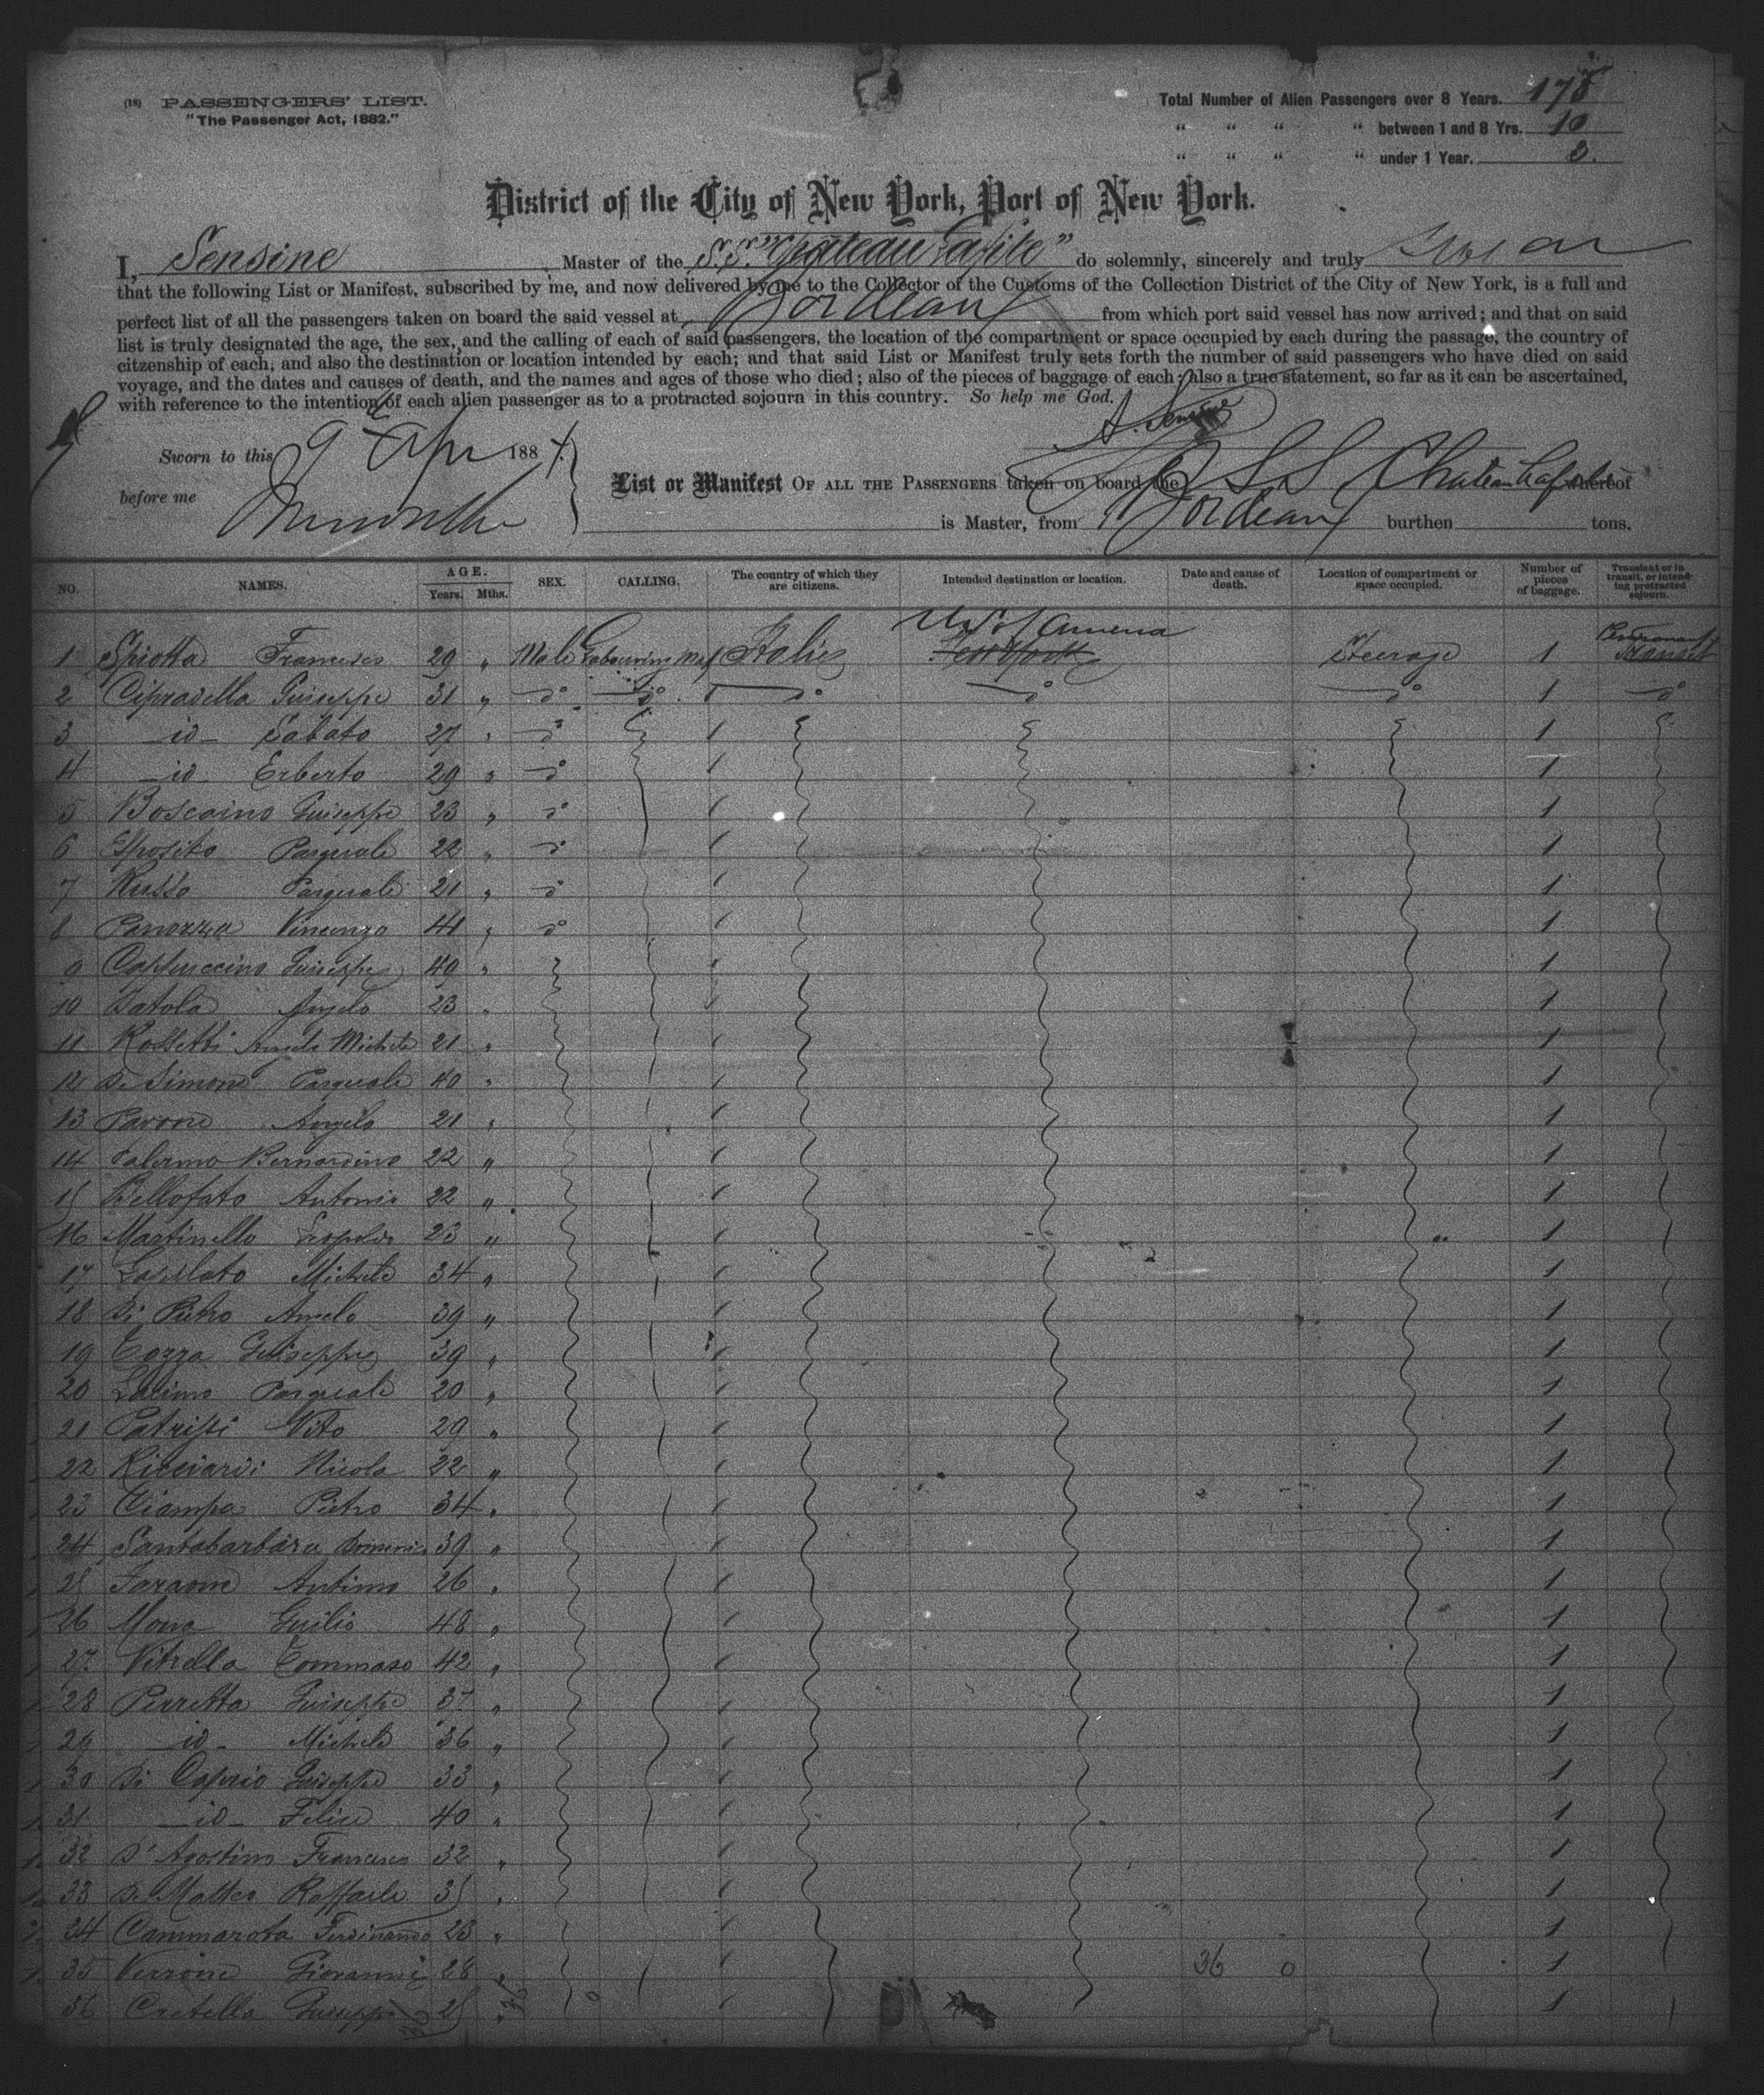 (18) PASSENGERS' LIST.
"The Passenger Act, 1882."
Total Number of Alien Passengers over 8 Years. 178
" " " " between 1 and 8 Yrs. 10
" " " " under 1 Year. 3.
District of the City of New York, Port of New York.
I, Sensine Master of the S.S. "Chateau Lafite" do solemnly, sincerely and truly swear
that the following List or Manifest, subscribed by me, and now delivered by me to the Collector of the Customs of the Collection District of the City of New York, is a full and
perfect list of all the passengers taken on board the said vessel at Bordeaux from which port said vessel has now arrived; and that on said
list is truly designated the age, the sex, and the calling of each of said passengers, the location of the compartment or space occupied by each during the passage, the country of
citzenship of each, and also the destination or location intended by each; and that said List or Manifest truly sets forth the number of said passengers who have died on said
voyage, and the dates and causes of death, and the names and ages of those who died; also of the pieces of baggage of each; also a true statement, so far as it can be ascertained,
with reference to the intention of each alien passenger as to a protracted sojourn in this country. So help me God.
A. Sensine
Sworn to this 9 Apr 1887.
before me
List or Manifest OF ALL THE PASSENGERS taken on board the SS Chateau Lafite whereof
is Master, from Bordeaux burthen tons.
NO. NAMES. AGE. Years. Mths. SEX. CALLING. The country of which they are citizens. Intended destination or location. Date and cause of death. Location of compartment or space occupied. Number of pieces of baggage. Transient or in transit, or intending protracted sojourn.
U.S. of America
1 Spiotta Francesco 29 " Male Labouring Man Italie New York Steerage 1 Transit
2 Cipradella Guiseppe 31 " do do do do do 1 do
3 id Sabato 27 " do 1
4 id Erberto 29 " do 1
5 Boscaino Guiseppe 23 " do 1
6 Esposito Pasquale 22 " do 1
7 Russo Pasquale 21 " do 1
8 Panozza Vincenzo 41 " do 1
9 Captuccino Guiseppe 49 " 1
10 Batola Angelo 23 " 1
11 Rossetti Angelo Michele 21 " 1
12 De Simone Pasquale 40 " 1
13 Pavone Angelo 21 " 1
14 Palermo Bernardino 22 " 1
15 Bellofato Antonio 22 " 1
16 Martinello Leopoldo 23 " 1
17 Michele 34 " 1
18 Di Pietro Angelo 39 " 1
19 Cozza Guiseppe 39 " 1
20 Pasquale 20 " 1
21 Patrissi Vito 29 " 1
22 Ricciardi Nicola 22 " 1
23 Ciampa Pietro 34 " 1
24 Santabarbara Domenico 39 " 1
25 Faraone Antimo 26 " 1
26 Mona Guilio 48 " 1
27 Vitrella Tommaso 42 " 1
28 Perretta Guiseppe 37 " 1
29 id Michele 36 " 1
30 Di Caprio Guiseppe 33 " 1
31 id Felice 40 " 1
32 D'Agostino Francesco 32 " 1
33 De Matteo Raffaele 35 " 1
34 Cammarota Ferdinando 23 " 1
35 Verrone Giovanni 28 " 36 0 1
36 Critella Guiseppe 25 " 36 0 1